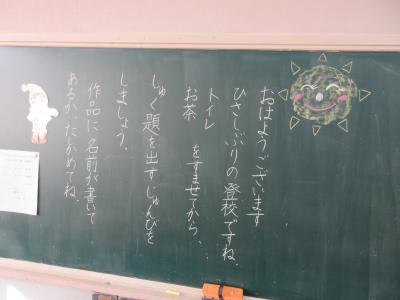 おはようございます
ひさしぶりの登校ですね。
トイレ
お茶
をすませてから、
しゅく題を出すじゅんびを
しましょう。
作品に名前が書いて
あるか、たしかめてね。